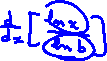 d/dx [ ln x / ln b ]